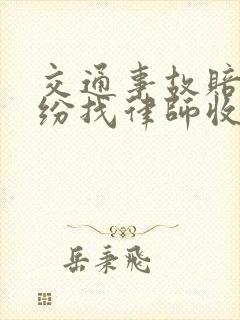 交通事故赔
纷找律师收
岳秉飞